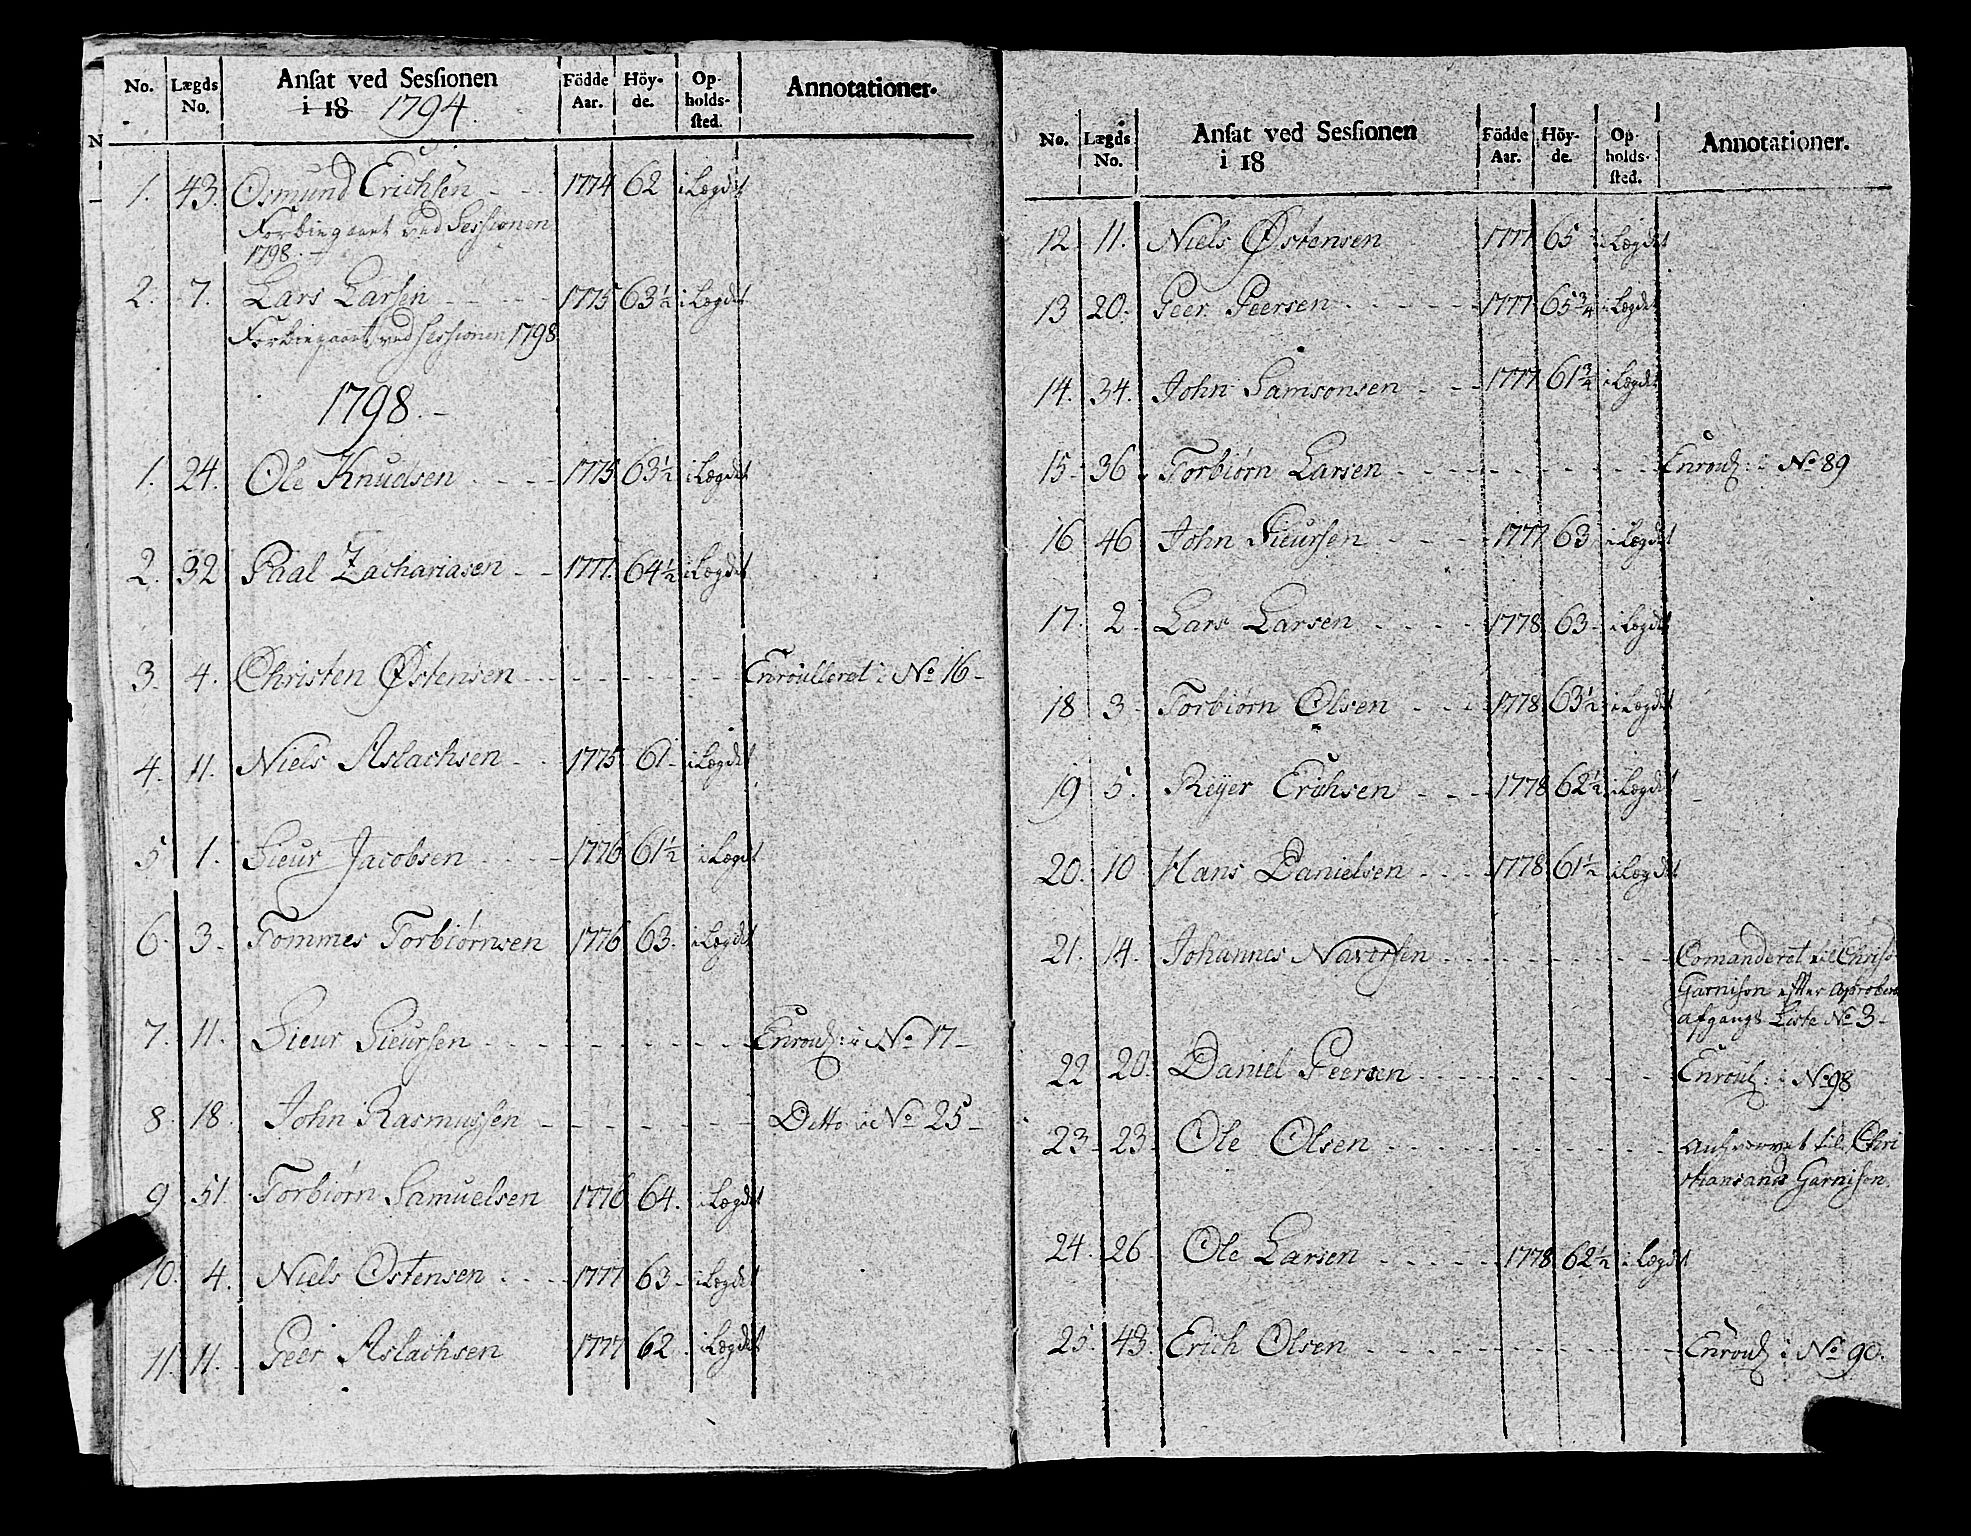 No. Lægds No. Ansat ved Sessionen i 18 1794. Födde Aar. Höyde. Opholdssted. Annotationer.
1. 43. Osmund Erichsen - - 1774 62 i Lægdet
Forbiegaaet ved Sessionen
1798. -
2. 7. Lars Larsen - - - 1775 63½ i Lægdet
Forbiegaaet ved Sessionen 1798
1798. -
1. 24. Ole Knudsen - - - 1775 63½ i Lægdet
2. 32 Paal Zachariasen - - 1777. 64½ i Lægdet
3. 4. Christen Østensen - - - - - - - Enroulleret i No 16 -
4. 11. Niels Aslachsen - - 1775 61 - i Lægdet
5 1. Sieur Jacobsen - - - 1776 61½ i Lægdet
6. 3. Tommes Torbiørnsen 1776 63. i Lægdet
7. 11. Sieur Sieursen - - - - - - - - Enroul: i No 17 -
8. 18. John Rasmussen - - - - - - - Ditto i No 25 -
9 51. Torbiørn Samuelsen 1776 64. i Lægdet
10. 4. Niels Ostensen - - - 1777 63 - i Lægdet
11. 11. Peer Aslachsen 1777 62. i Lægdet
No. Lægds No. Ansat ved Sessionen i 18 Födde Aar. Höyde. Opholdssted. Annotationer.
12. 11. Niels Østensen 1777 65 i Lægdet
13 20. Peer Peersen - - - - 1777 65¾ i Lægdet
14. 34. John Samsonsen - - 1777 61¾ i Lægdet
15 - 36. Torbiørn Larsen - - - - - - - - Enroul: i No 89
16 46 John Sieursen - - - - 1777 63 i Lægdet
17. 2 Lars Larsen - - - - 1778 63 - i Lægdet
18 3 - Torbiørn Olsen - - - 1778 63½ i Lægdet
19 5. Reyer Erichsen - - - 1778 62½ i Lægdet
20. 10 Hans Danielsen - - - 1778 61½ i Lægdet
21. 14. Johannes Naversen - - - - - - - - Comanderet til Chrisd
Garnison efter
afgangs Liste No 3 -
22 20. Daniel Peersen - - - - - - - - Enroul: i No 98
23 - 23. Ole Olsen - - - - - - - - til Chri
stiansands Garnison.
24. 26 Ole Larsen - - - - - 1778 62½ i Lægdet
25 43. Erich Olsen - - - - - - - - - Enroul: i No 90.